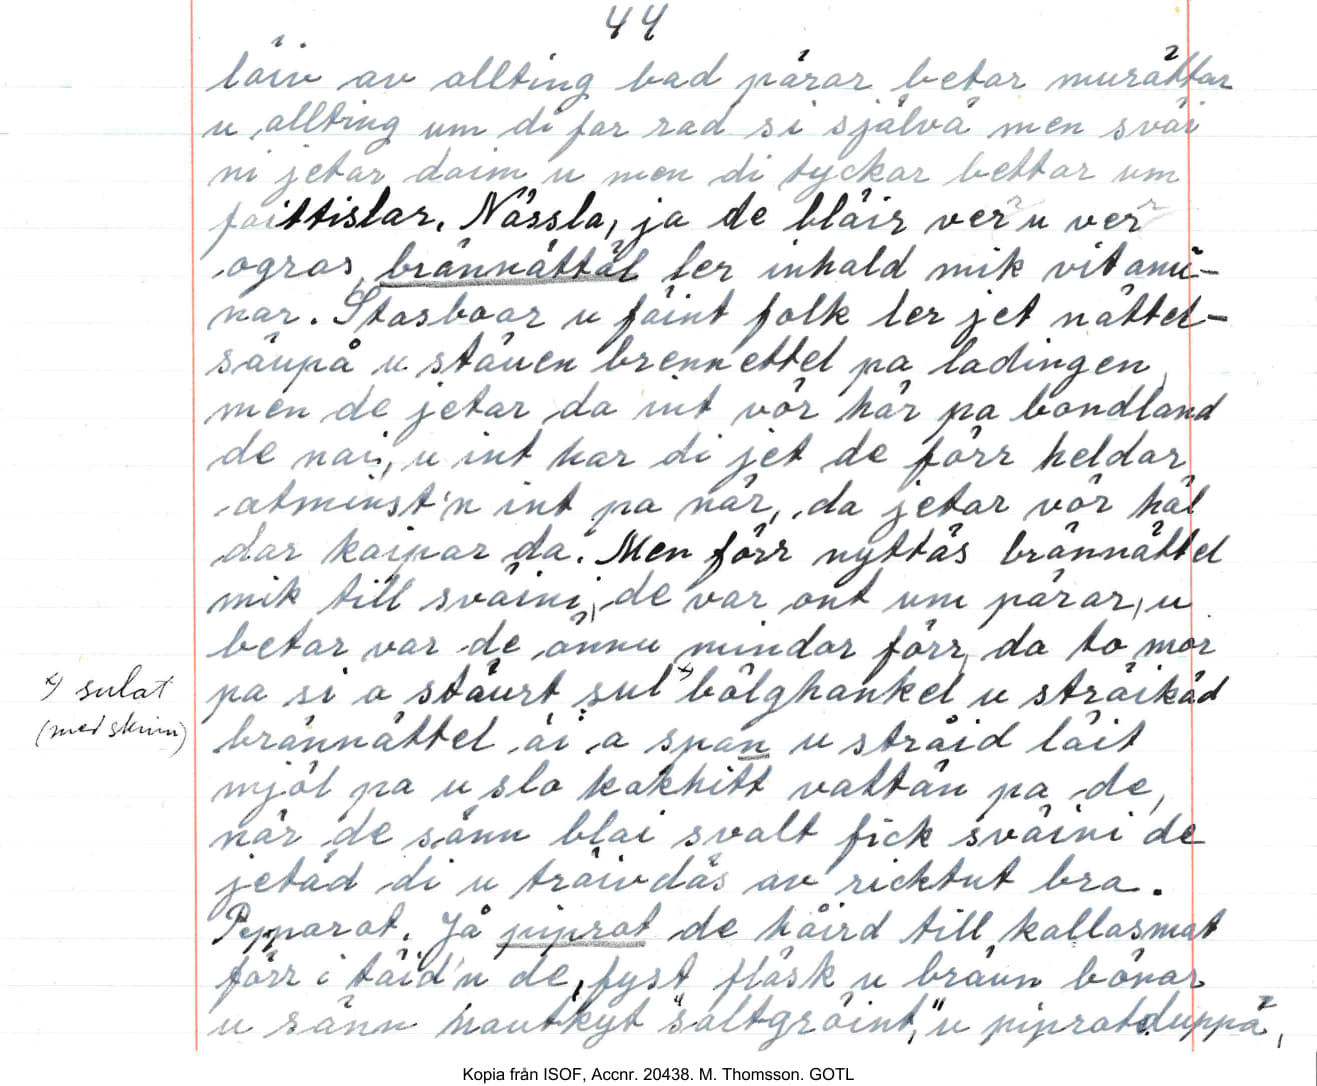 44
läiv av allting bad pärar betar murättar
u allting um di far rad si självä men sväi
ni jetar daim u men di tyckar bettar um
faittislar. Nässla, ja de bläir ver u ver
ogras, brännättäl ler inhald mik vitami-
nar. Stasboar u fäint folk ler jet nättel-
säupå u stäuen brennettel pa ladingen,
men de jetar da int vör här pa bondland
de nai, u int har di jet de förr heldar
atminst'n int pa när, da jetar vör häl
dar kaipar da. Men förr nyttäs brännättel
mik till sväini, de var ont um pärar, u
betar var de ännu mindar förr, da to mor
pa si a stäurt sul x) bälghankel u sträikäd
x) sulat
(med skinn)
brännättel äi a span u sträid läit
mjöl pa u slo kakhitt vattän pa de,
när de sänn blai svalt fick sväini de
jetäd di u träivdäs av ricktut bra.
Pepparot. Jå piprot de håird till kallasmat
förr i täid'n de, fyst fläsk u bräun bönar
u sänn nautkyt "saltgröint," u piprotduppä,
Kopia från ISOF, Accnr. 20438. M. Thomsson. GOTL